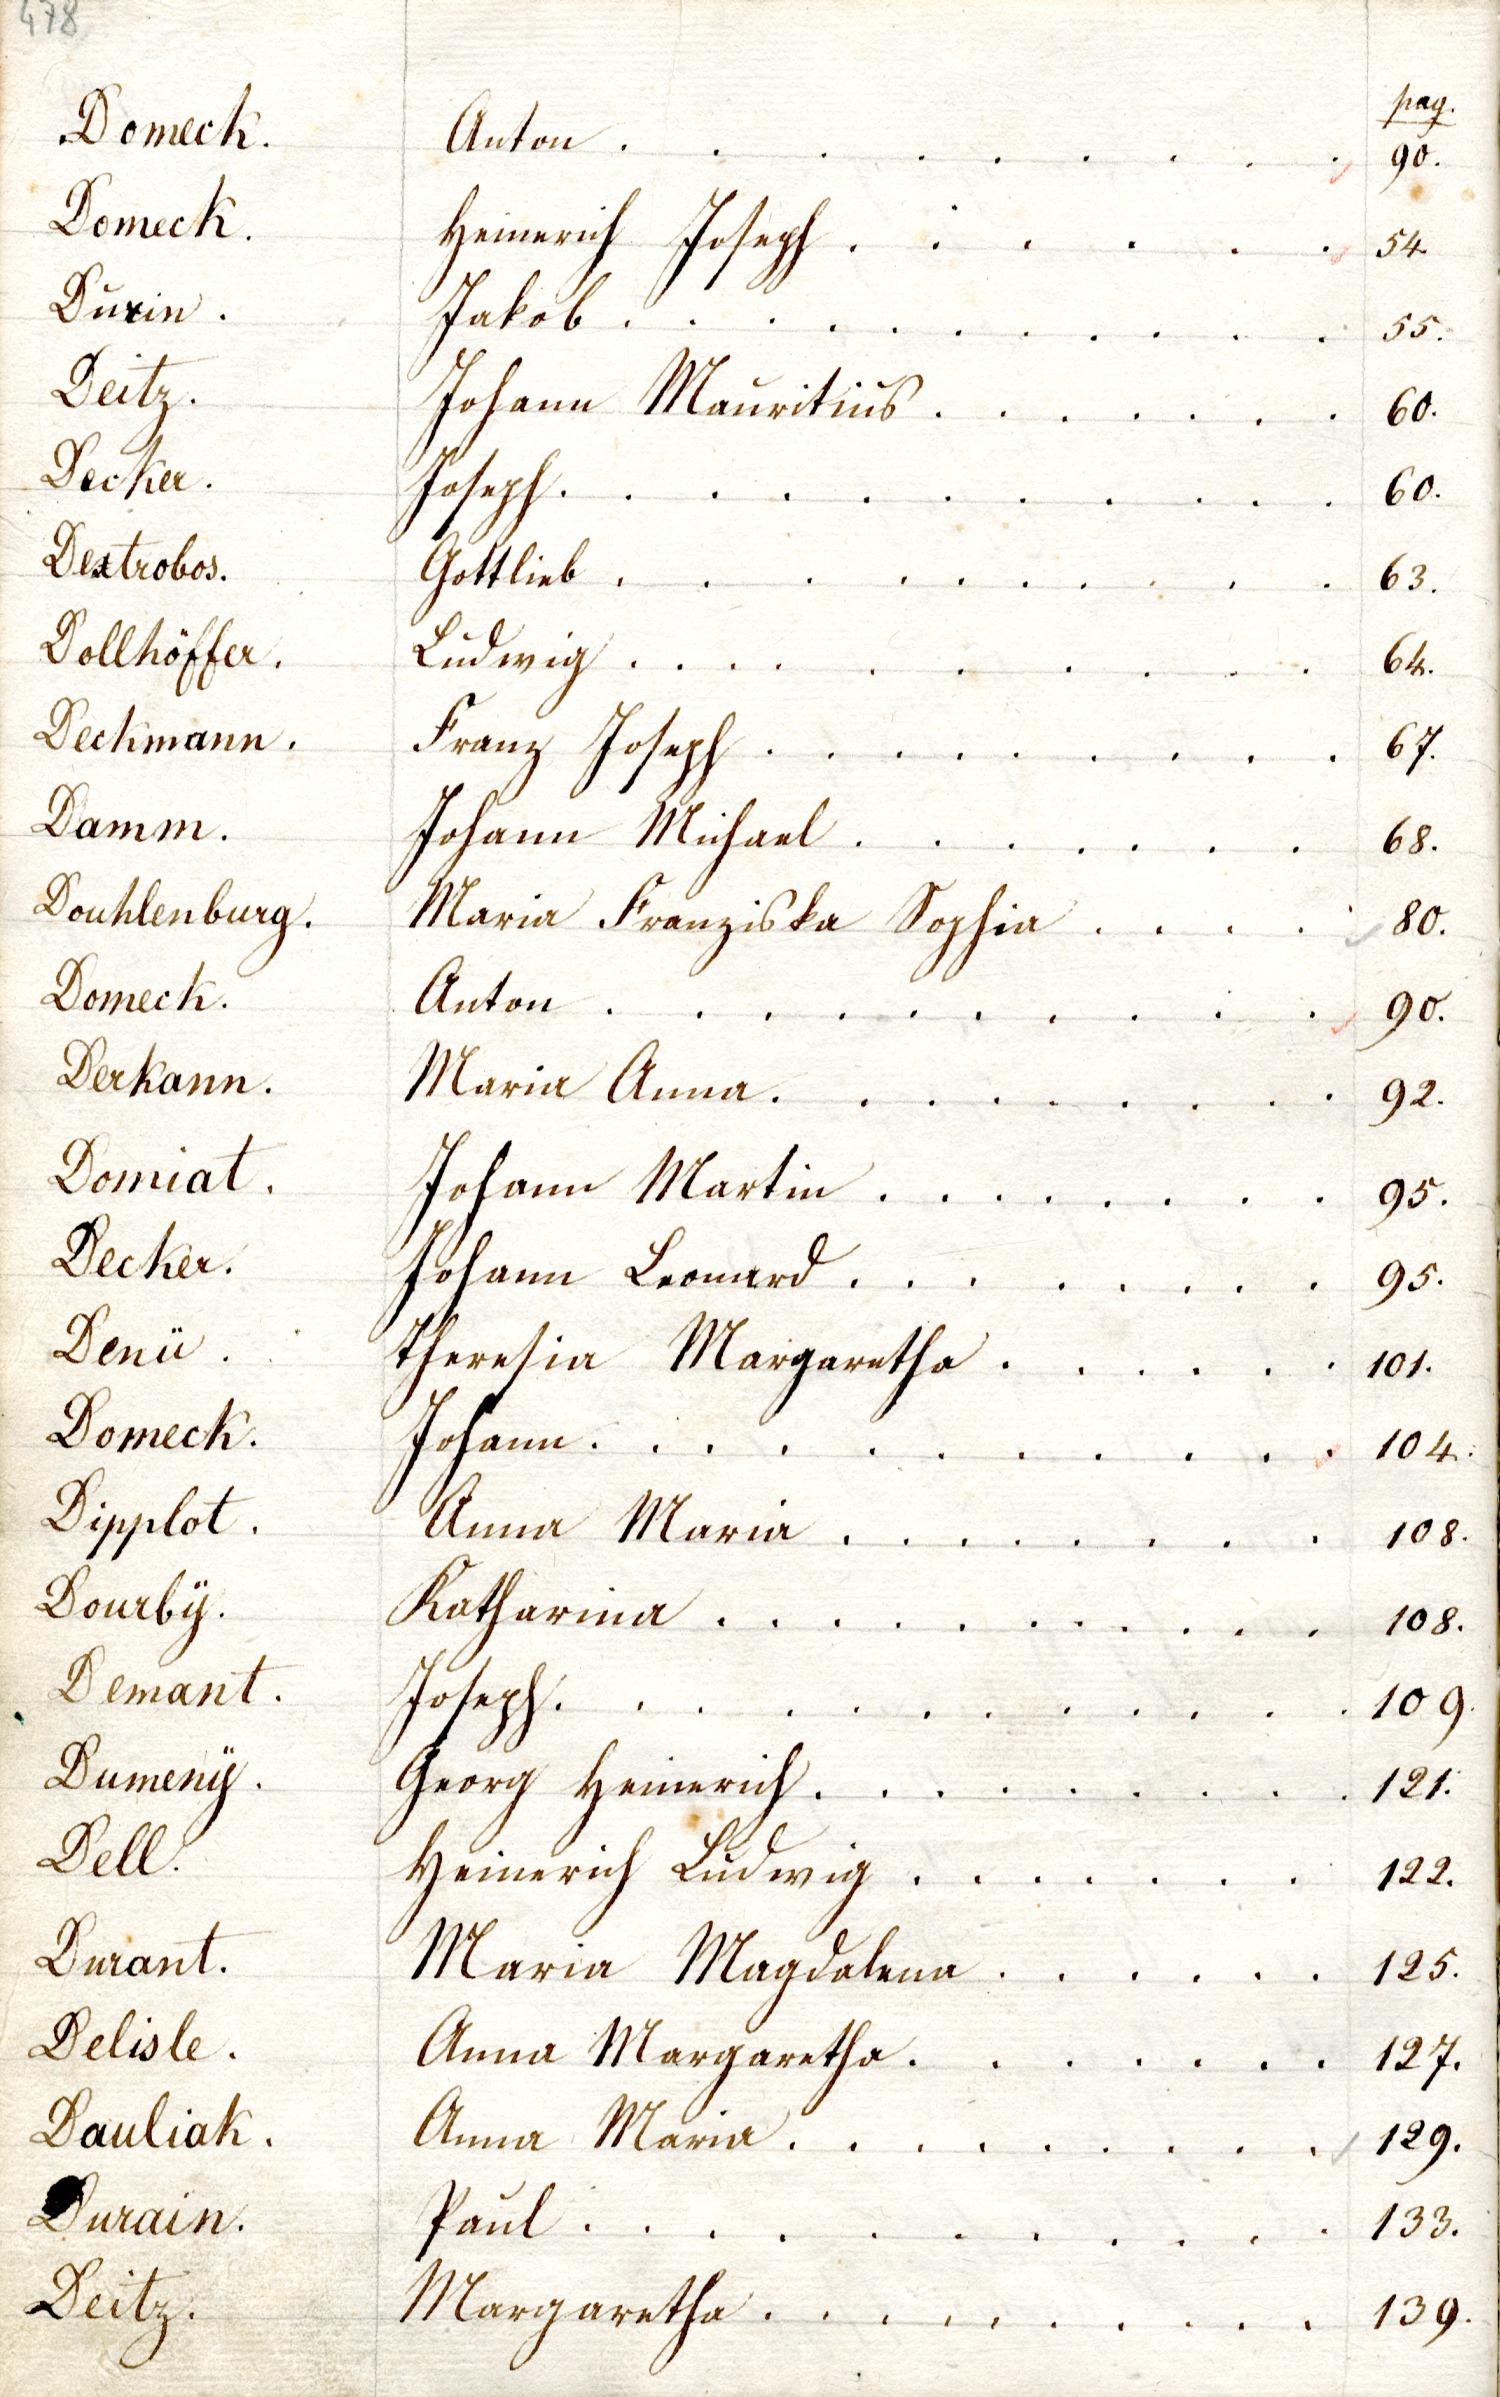 478
pag.
Domeck. Anton . . . . . . . . . 90.
Domeck. Heinerich Joseph . . . . . . 54
Durin. Jakob . . . . . . . . . . 55.
Deitz. Johann Mauritius . . . . . . . 60.
Decker. Joseph . . . . . . . . . . 60.
Dextrobos. Gottlieb . . . . . . . . . 63.
Dollhöffer. Ludwig . . . . . . . . . 64.
Deckmann. Franz Joseph . . . . . . . . 67.
Damm. Johann Michael . . . . . . . 68.
Douhlenburg. Maria Franziska Sophia . . . . . 80.
Domeck. Anton . . . . . . . . . . 90.
Derkann. Maria Anna . . . . . . . . 92.
Domiat. Johann Martin . . . . . . . 95.
Decker. Johann Leonard . . . . . . . . 95.
Denü. Theresia Margaretha . . . . . . 101.
Domeck. Johann . . . . . . . . . . 104.
Dipplot. Anna Maria . . . . . . . . 108.
Dourbÿ. Katharina . . . . . . . . . . 108.
Demant. Joseph . . . . . . . . . . 109.
Dumenÿ. Georg Heinerich . . . . . . . . 121.
Dell. Heinerich Ludwig . . . . . . . 122.
Durant. Maria Magdalena . . . . . . 125.
Delisle. Anna Margaretha . . . . . . . 127.
Dauliak. Anna Maria . . . . . . . . . 129.
Durain. Paul . . . . . . . . . . . 133.
Deitz. Margaretha . . . . . . . . . . 139.